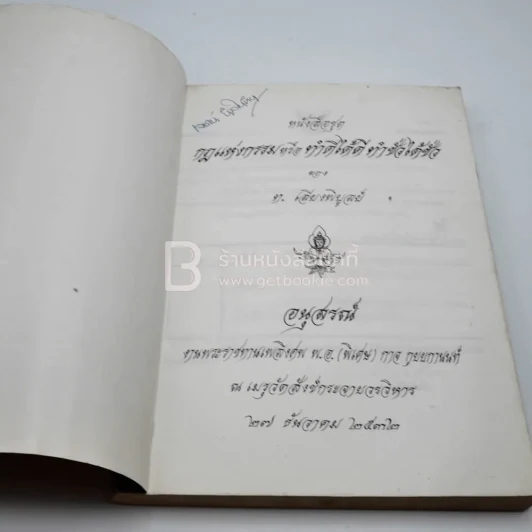 หนังสือชุด
กฎแห่งกรรมหรือ ทำดีได้ดี ทำชั่วได้ชั่ว
ของ
ท. เลียงพิบูลย์
ร้านหนังสือบุ๊คกี้
www.getbookie.com
อนุสรณ์
งานพระราชทานเพลิงศพ พ.อ. (พิเศษ) กาจ กุยยกานนท์
ณ เมรุวัดสังข์กระจายวรวิหาร
๒๗ ธันวาคม ๒๕๓๒